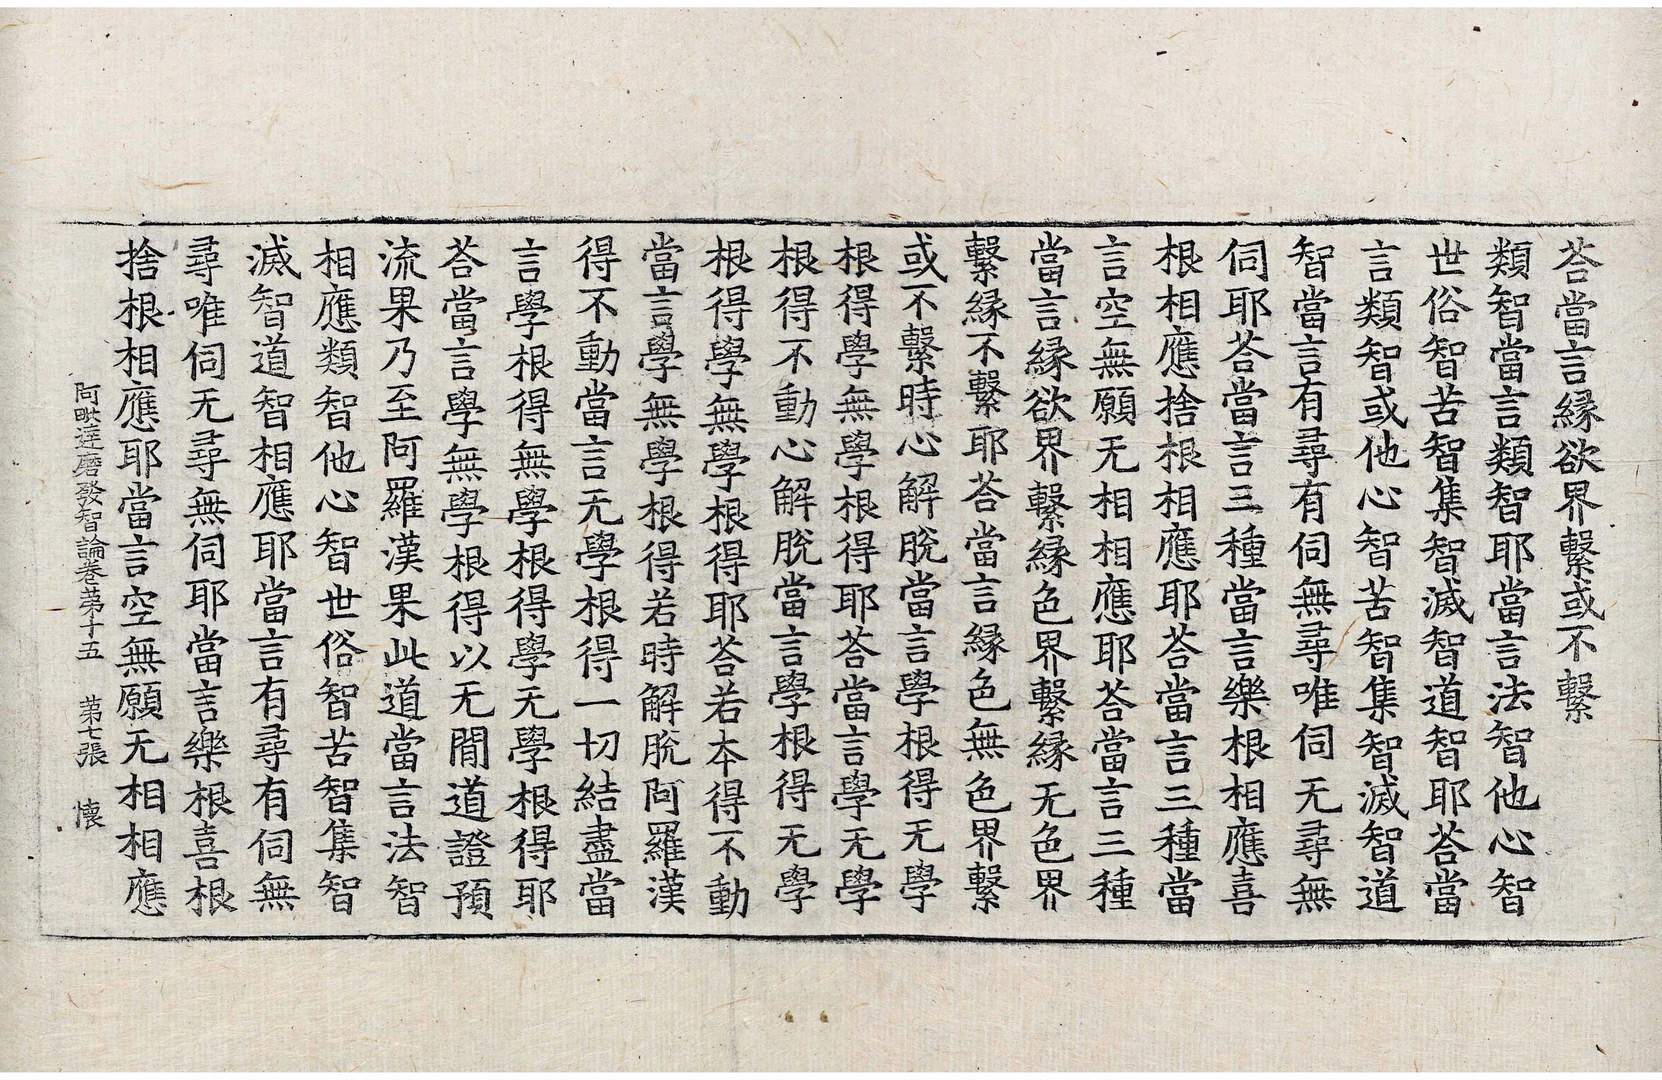 荅當言縁欲界繫或不繫
類智當言類智耶當言法智他心智
世俗智苦智集智滅智道智耶荅當
言類智或他心智苦智集智滅智道
智當言有尋有伺無尋唯伺无尋無
伺耶荅當言三種當言樂根相應喜
根相應捨根相應耶荅當言三種當
言空無願无相相應耶荅當言三種
當言縁欲界繫縁色界繫縁无色界
繫縁不繫耶荅當言縁色無色界繫
或不繫時心解脫當言學根得无學
根得學無學根得耶荅當言學无學
根得不動心解脫當言學根得无學
根得學無學根得耶荅若本得不動
當言學無學根得若時解脫阿羅漢
得不動當言无學根得一切結盡當
言學根得無學根得學无學根得耶
荅當言學無學根得以无閒道證預
流果乃至阿羅漢果此道當言法智
相應類智他心智世俗智苦智集智
滅智道智相應耶當言有尋有伺無
尋唯伺无尋無伺耶當言樂根喜根
捨根相應耶當言空無願无相相應
阿毗達磨發智論卷苐十五 苐七張 懷